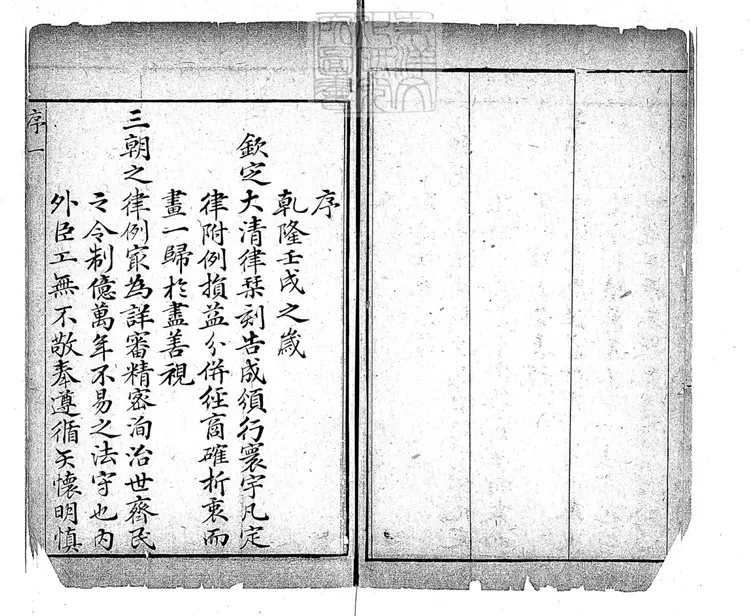 序
乾隆壬戌之歳
欽定大清律栞刻告成頒行寰宇凡定
律附例損益分併經啇確折衷而
畫一歸於盡善視
三朝之律例㝡為詳審精宻洵治世齊民
之令制億萬年不易之法守也内
外臣工無不敬奉遵循矢懷明慎
序一